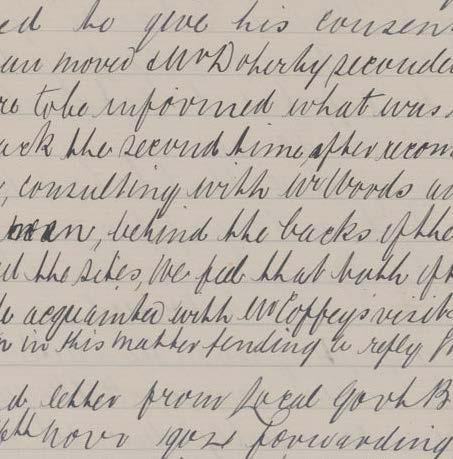 ed to give his consen
an moved Mr Doherty seconde
re to be informed what was
ack the second time, after recom
, consulting with Mr Woods a
, behind the backs of the
the sites, We feel that both of
acquainted with Mr Coffey's visit
n in this matter pending a reply
d letter from Local Govt B
6th Novr forwarding